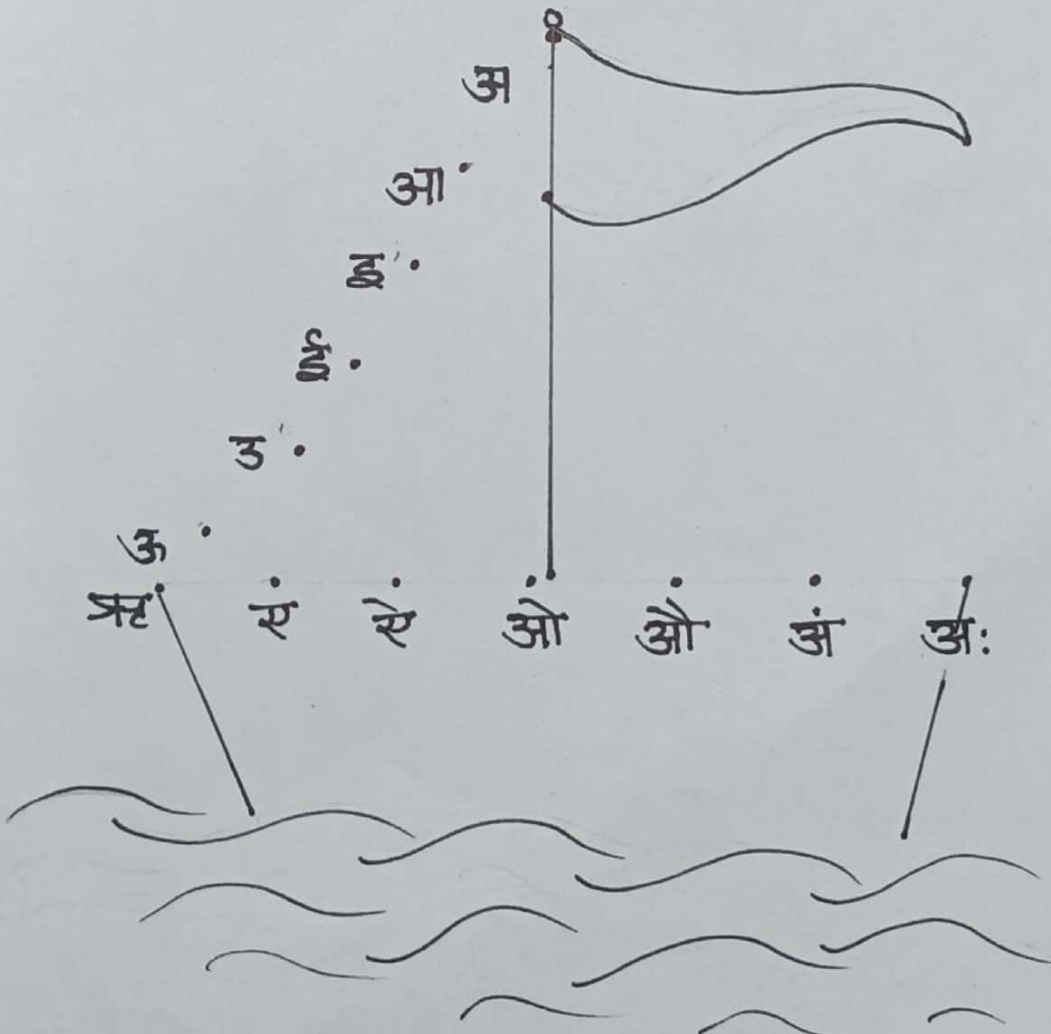 अ
आ
इ
ई
उ
ऊ
ऋ ए ऐ ओ औ अं अः